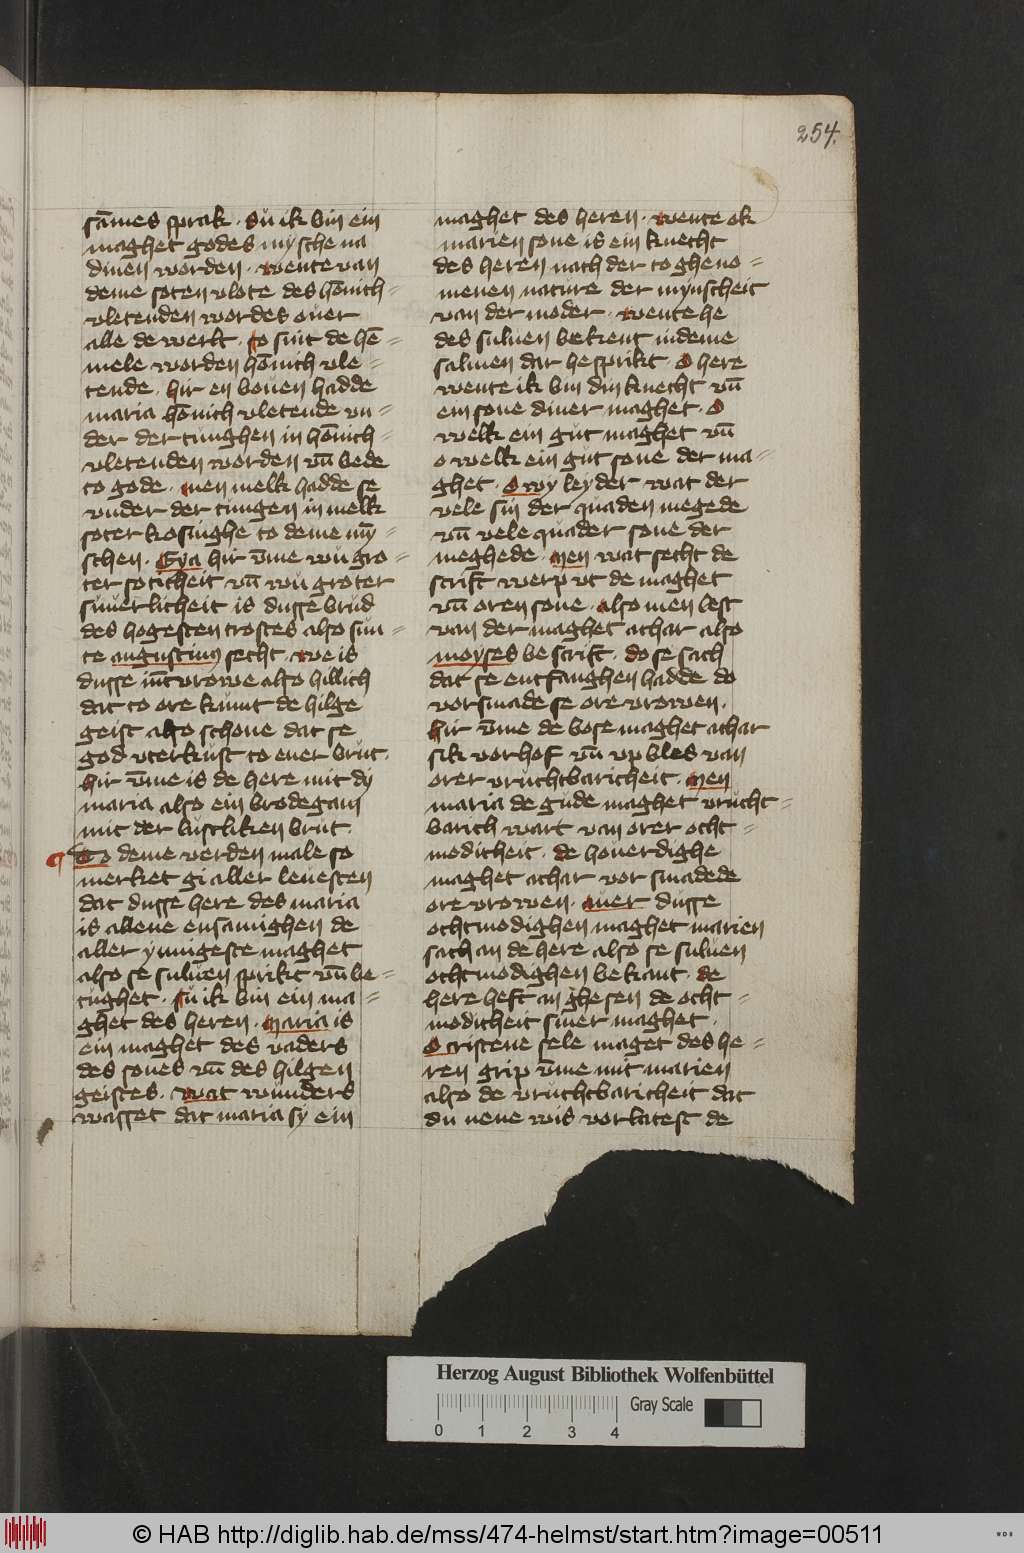 254.
sāmes sprak · Sü ik bin ein
maghet godes my sche na
dinen worden · Wente van
deme soten vlote des hönich=
vletenden wordes ouer
alle de werlt · To sint de hē=
mele worden hönich vle=
tende · hir en bouen hadde
maria hönich vletende vn=
der der tünghen in hönich=
vletenden worden vn̄ bede
to gode · Men melk hadde se
vnder der tungen in melk
soter kosinghe to deme my̅=
schen · Eya hir v̄me wü gro=
ter soticheit vn̄ wü groter
süuerlicheit is dusse brüd
des hogesten trostes also sün=
te augustinus secht · We is
dusse iūcvrowe also hillich
dat to ore kümt de hilge
geist also schone dat se
god vterküst to ener brüt ·
Hir v̄me is de here mit dy
maria also ein brodegam
mit der lustliken brüt ·
¶ To deme verden male so
merket gi aller leuesten
dat dusse here des maria
is allene ensamighen de
aller ynnigeste maghet
also se süluen sprikt vn̄ be=
tüghet · Sü ik bin ein ma=
ghet des heren · Maria is
ein maghet des vaders
des sones vn̄ des hilgen
geistes · Wat wünders
wasset dat maria sy ein
maghet des heren · Wente ok
marien sone is ein knecht
des heren nach der to gheno=
menen natüre der mynscheit
van der moder · Wente he
des süluen bekent in deme
salmen dar he sprikt · O here
wente ik bin din knecht vn̄
ein sone diner maghet · O
welk ein güt maghet vn̄
o welk ein güt sone der ma=
ghet · O wy leyder wat der
vele sin der quaden megede
vn̄ vele quader sone der
meghede · Men wat secht de
scrift werp vt de maghet
vn̄ oren sone · Also men lest
van der maghet athar also
moyses bescrift · do se sach
dat se entfanghen hadde do
vorsmade se ore vrowen ·
Hir v̄me de bose maghet athar
sik vorhof vn̄ vp bles van
orer vrüchtbaricheit · Men
maria de güde maghet vrücht=
barich wart van orer ocht=
modicheit · de houerdighe
maghet athar vorsmadede
ore vrowen · Auer dusse
ochtmodighen maghet marien
sach an de here also se süluen
ochtmodighen bekant · de
here heft an ghesen de ocht=
modicheit siner maghet ·
O cristene sele maget des he=
ren grip v̄me mit marien
also de vrüchtbaricheit dat
du nene wis vorlatest de
Herzog August Bibliothek Wolfenbüttel
0 1 2 3 4
Gray Scale
© HAB http://diglib.hab.de/mss/474-helmst/start.htm?image=00511